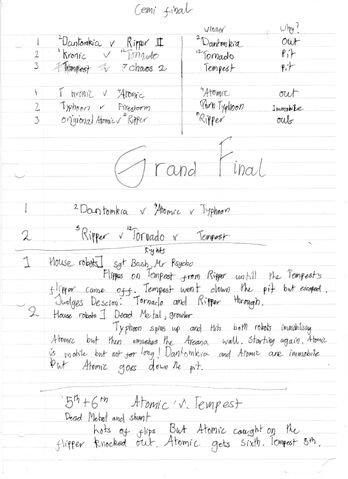 Cemi final
winner Why?
1 Dantomkia v Ripper II Dantomkia Out
2 Kronic v Tornado Tornado pit
3 Tempest v chaos 2 Tempest pit
1 kronic v Atomic Atomic out
2 Typhoon v Firestorm Typhoon immobile
3 origional Atomic v Ripper Ripper outs
Grand Final
1 Dantomkia v Atomic v Typhoon
2 Ripper v Tornado v Tempest
Fights
1 House robots] sgt Bash, Mr Psycho
Flippes on Tempest from Ripper untill the Tempest's
flipper came off. Tempest went down the pit but escaped.
Judges Descion: Tornado and Ripper through.
2 House robots] Dead Metal, growler
Typhoon spins up and hits both robots immobilising
Atomic but then smashes the Areana wall. Starting again. Atomic
is mobile but not for long! Dantomkia and Atomic are immobile
But Atomic goes down the pit.
5th + 6th Atomic v. Tempest
Dead Metal and shunt
Lots of flips But Atomic caught on the
flipper knocked out. Atomic gets sixth. Tempest 5th.